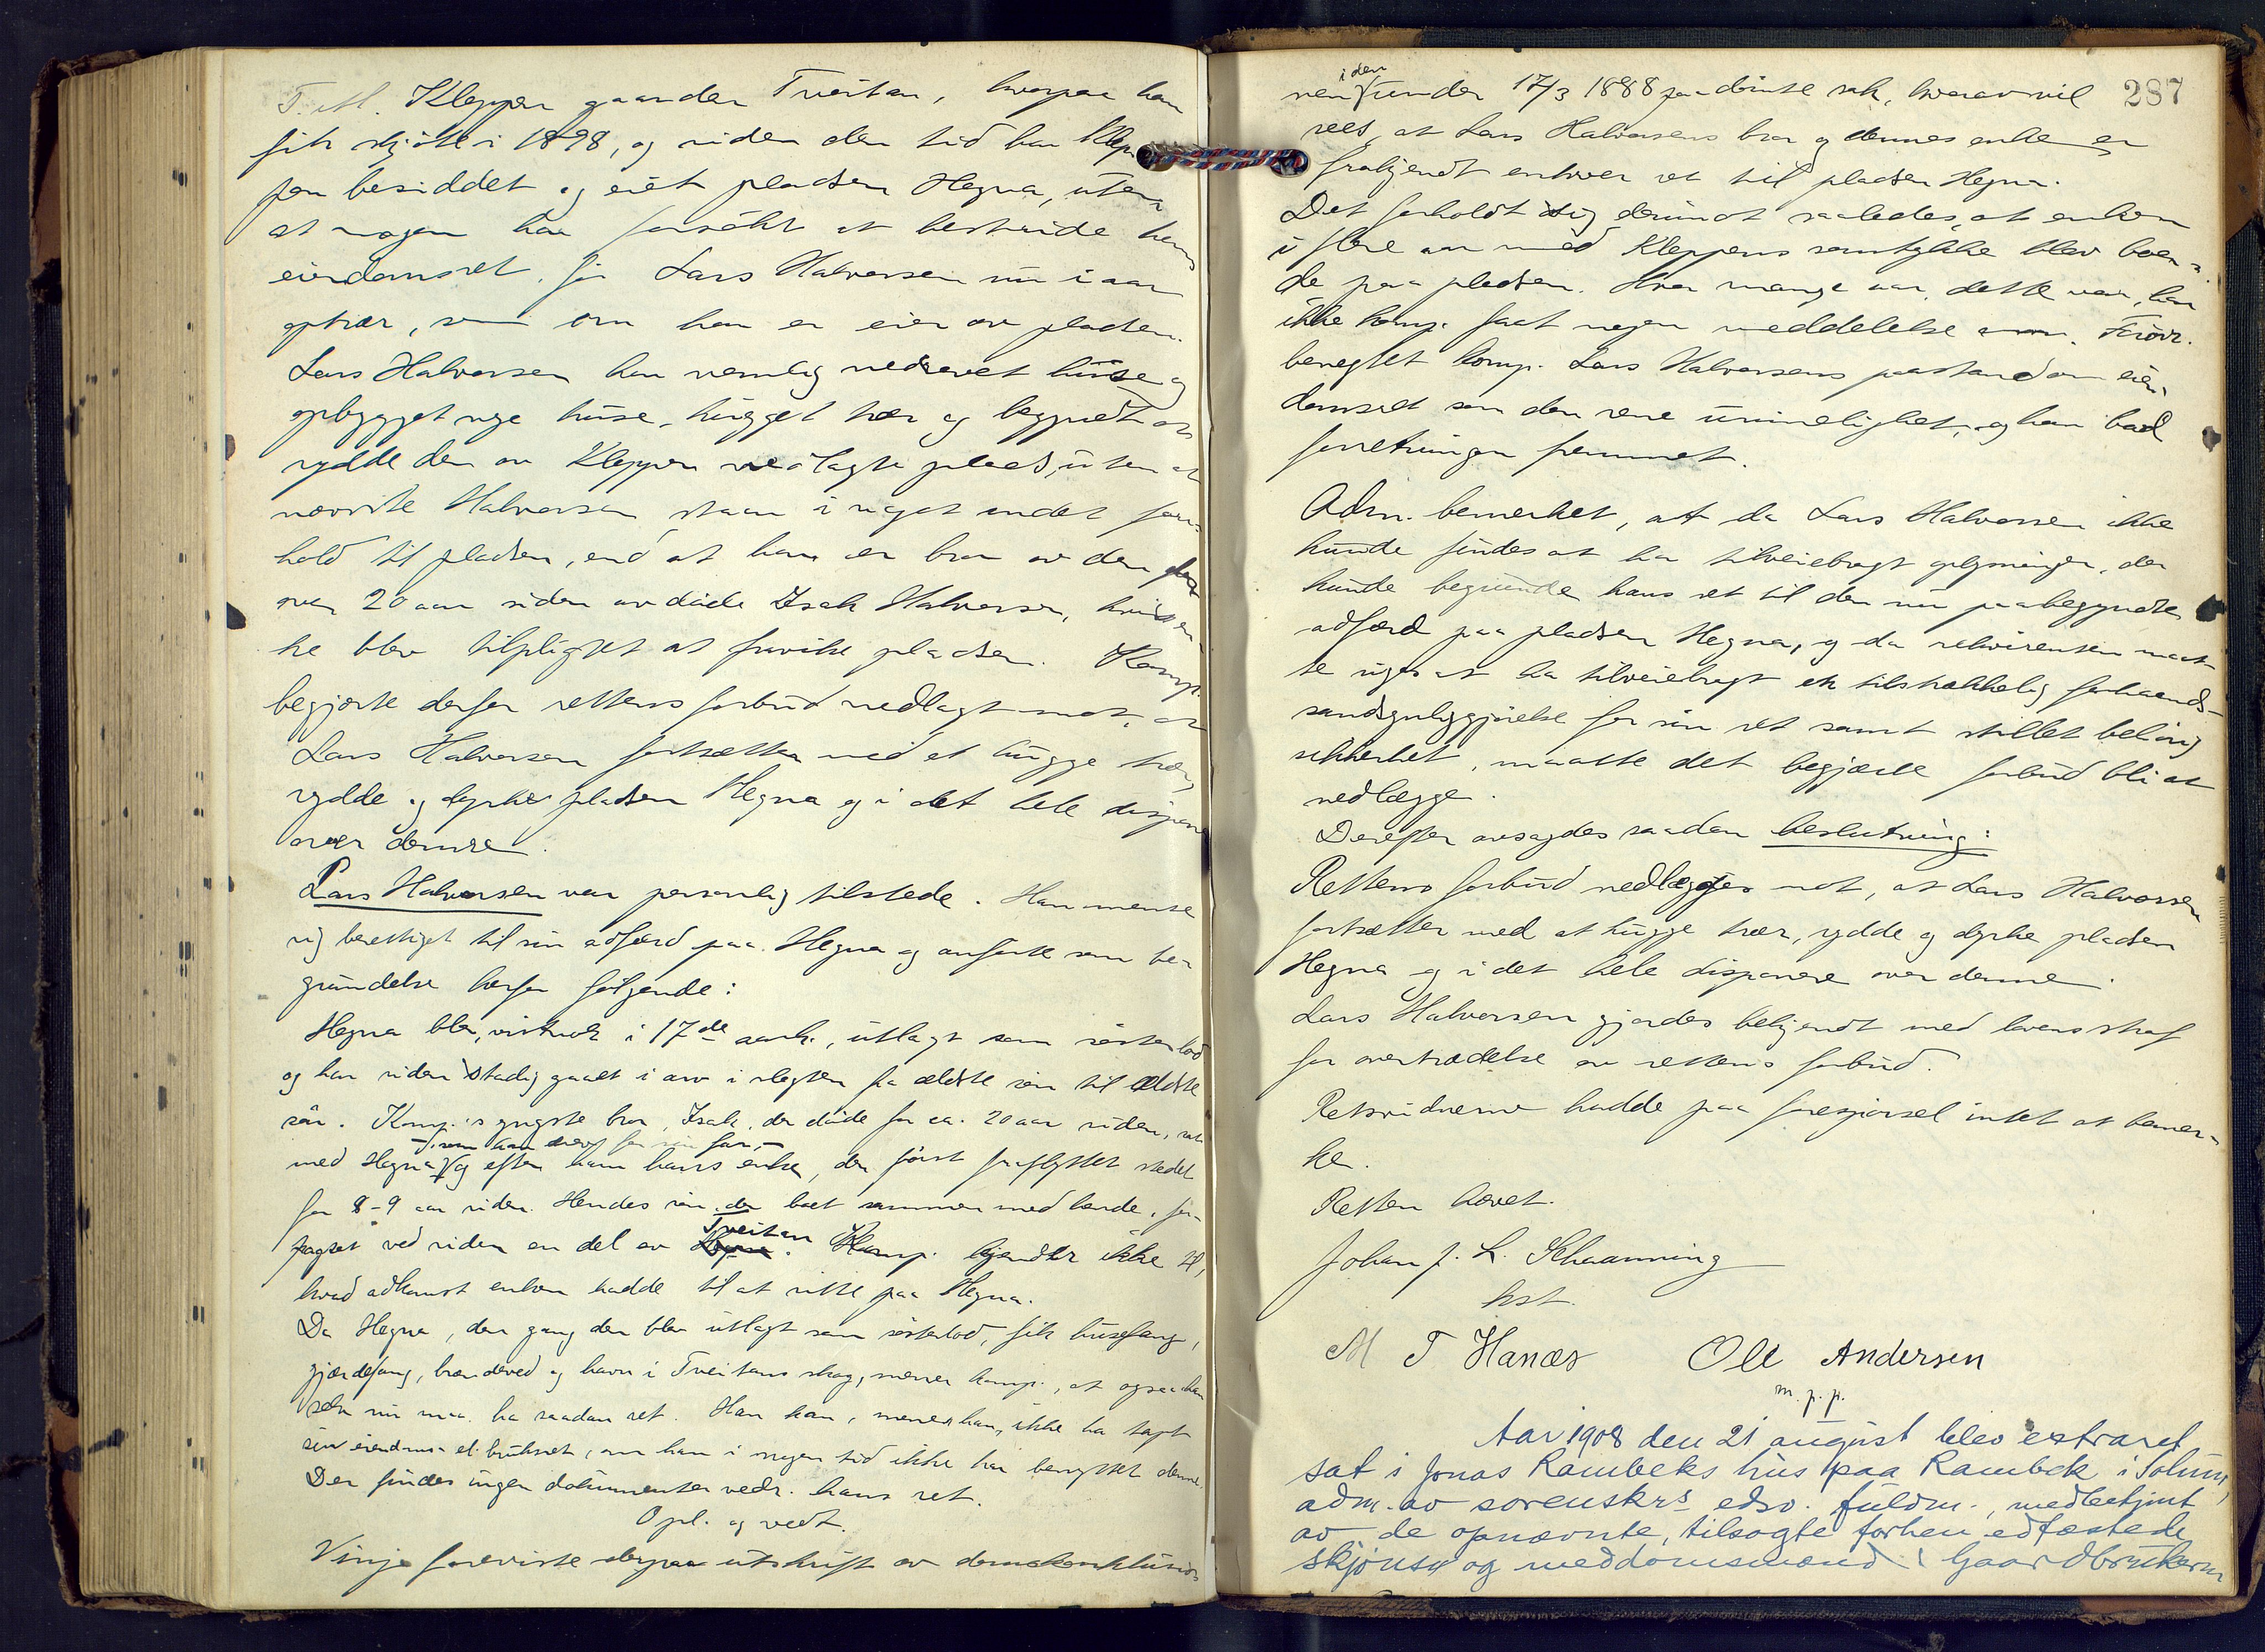 T. M. Kleppen gaarden Tveitan, hvorpaa han
fik skjøte i 1898, og siden den tid har Klep-
pen besiddet og eiet pladsen Hegna, uten
at nogen har forsøkt at bestride hans
eiendomsret, før Lars Halvorsen nu i aar
optrær, som om han er eier av pladsen.
Lars Halvorsen har nemlig nedrevet husene og
opbygget nye huse, hugget trær og begyndt at
rydde den av Kleppen nedlagte plads, uten at
nævnte Halvorsen staar i noget andet for-
hold til pladsen, end at han er bror av den for
over 20 aar siden avdøde Isak Halvorsen, hvis en-
ke blev tilpligtet at fravike pladsen. Komp.
begjærte derfor rettens forbud nedlagt mot, at
Lars Halvorsen fortsætter med at hugge trær,
rydde og dyrke pladsen Hegna og i det hele disponere
over denne.
Lars Halvorsen var personlig tilstede. Han mente
sig berettiget til sin adfærd paa Hegna og anførte som be-
grundelse herfor følgende:
Hegna blev, vistnok i 17de aarh., utlagt som søsterlod
og har siden stadig gaaet i arv i slegten fra ældste søn til ældste
søn. Komp.'s yngste bror, Isak, der døde for ca. 20 aar siden, sat
-som han arvet før sin far,-
med Hegna og efter ham hans enke, der først fraflyttet stedet
for 8-9 aar siden. Hendes søn, der boet sammen med hende, for-
pagtet ved siden en del av Tveitan. Komp. kjender ikke til,
hvad adkomst enken hadde til at sitte paa Hegna.
Da Hegna, den gang den blev utlagt som søsterlod, fik husefang,
gjærdefang, brændeved og havn i Tveitans skog, mener komp., at ogsaa han
selv nu maa ha saadan ret. Han kan, mener han, ikke ha tapt
sin eiendoms- el. bruksret, om han i nogen tid ikke har benyttet denne.
Der findes ingen dokumenter vedr. hans ret.
Opl. og vedt.
Vinje foreviste derpaa utskrift av domskonklusio-
287
i den
nen under 17/3 1888 paadømte sak, hvorav vil
sees, at Lars Halvorsens bror og dennes enke er
frakjendt enhver ret til pladsen Hegna.
Det forholdt sig derimot saaledes, at enken
i flere aar med Kleppens samtykke blev boen-
de paa pladsen. Hvor mange aar, dette var, har
ikke komp. faat nogen meddelelse om. Forøvr.
benegtet komp. Lars Halvorsens paastand om eien-
domsret som den rene urimelighet, og han bad
forretningen fremmet.
Adm. bemerket, at da Lars Halvorsen ikke
kunde findes at ha tilveiebragt oplysninger, der
kunde begrunde hans ret til den nu paabegyndte
adfærd paa pladsen Hegna, og da rekvirenten maat-
te siges at ha tilveiebragt en tilstrækkelig forhaands-
sandsynliggjørelse for sin ret samt stillet belørig
sikkerhet, maatte det begjærte forbud bli at
nedlægge.
Derefter avsagdes saadan beslutning:
Rettens forbud nedlægges mot, at Lars Halvorsen
fortsætter med at hugge trær, rydde og dyrke pladsen
Hegna og i det hele disponere over denne.
Lars Halvorsen gjordes bekjendt med lovens straf
for overtrædelse av rettens forbud.
Retsvidnerne hadde paa forespørsel intet at bemer-
ke.
Retten hævet.
Johan J. L. Schaanning
kst.
M T Hanæs Ole Andersen
m. p. p.
Aar 1908 den 21 august blev extraret
sat i Jonas Rambeks hus paa Rambek i Solum,
adm. av sorenskrs edsv. fuldm., medbetjent
av de opnævnte, tilsagte forhen edfæstede
skjønsm og meddomsmænd: Gaardbrukerne